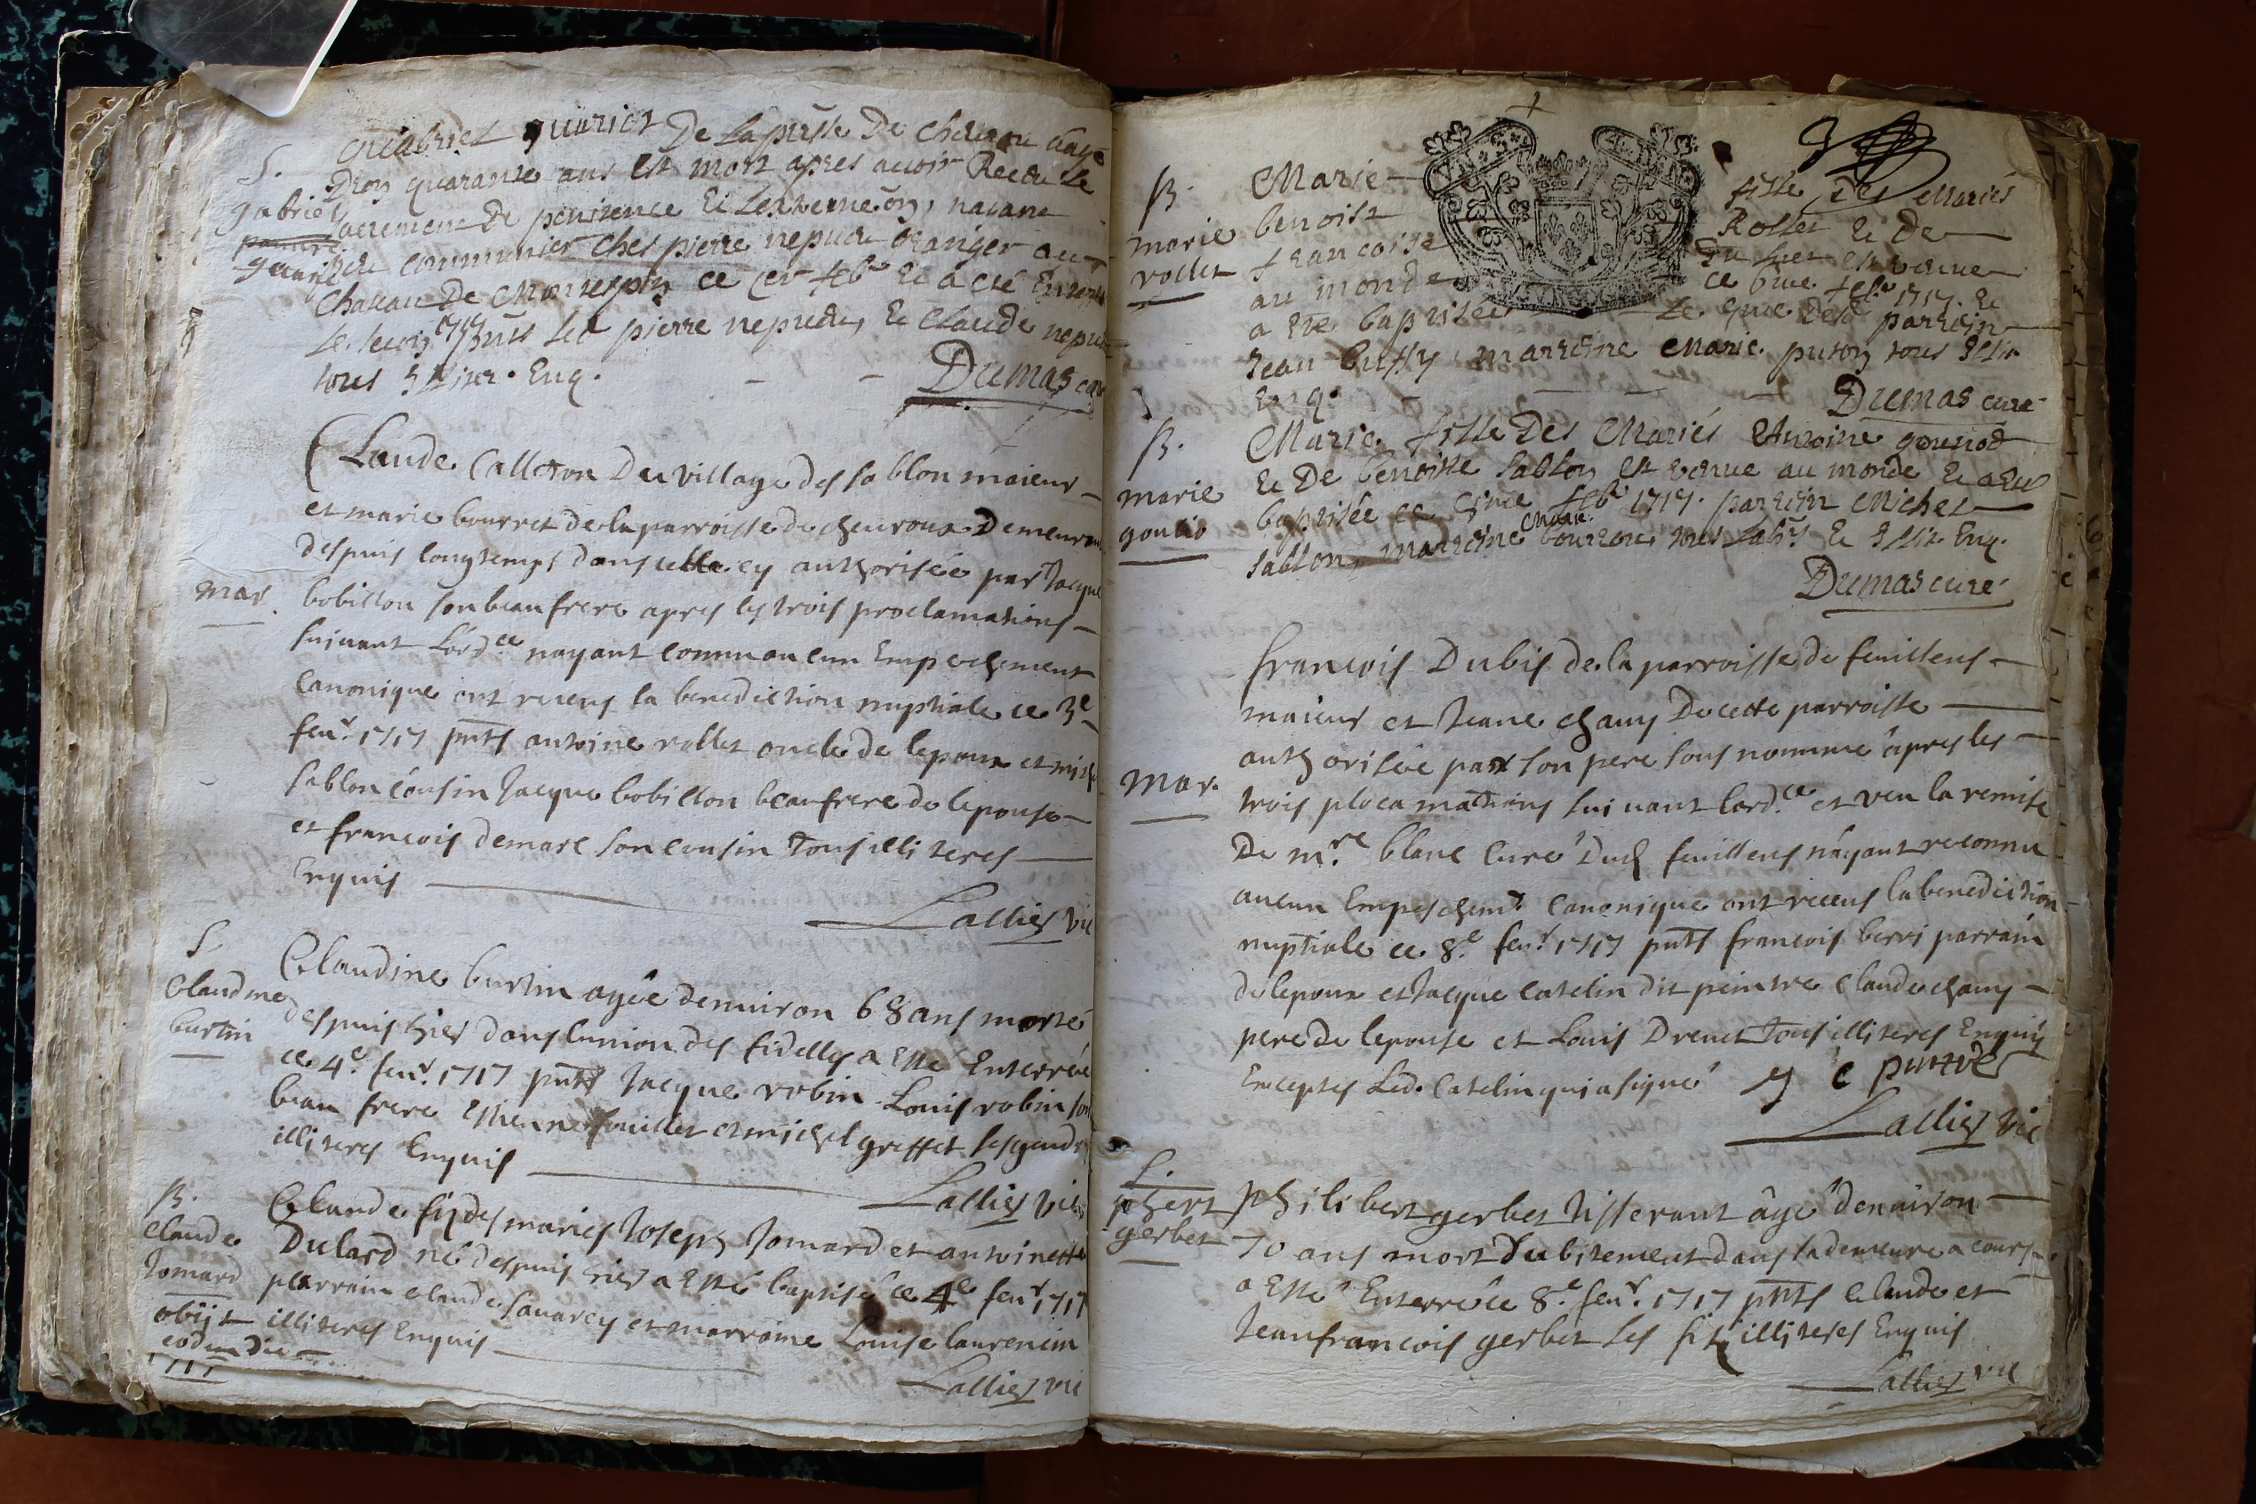 S.
gabriel
guariot
Gabriel guariot De la pnsse De Chevrou aagé
Dron quarante ans est mort apres avoir Receu le
sacrement De penitence Et Lextremeōn, nayant
peu communier Ches pierre nepuedu Granger au
Chateau De Monrepin ce 1er feb. Et a eté Enterré
Le lecon 1717 pn̄ts led pierre nepuedu, Et Claude nepuedu
tous Illiter. Enq.
Dumas curé
mar.
Claude Callton Du village des sablon maieur
et marie bourret de la parroisse de cheuroux Demeurant
despuis longtemps dans cette cy authorisée par Jacque
bobillon son beaufrere apres les trois proclamations
suivant lord.ce nayant connu aucun Empechement
canonique ont receus la benediction nuptiale ce 3e
feur. 1717 pnts antoine rollet oncle de lepoux et mich
sablon cousin Jacque bobillon beaufrere de lepouse
et francois demarc son cousin Tous illiteres
Enquis
Lallier vic
S.
Claudine
burtin
Claudine burtin agée denuiron 68 ans morte
despuis hier dans lunion des fidelles a Esté Enterrée
ce 4e feur. 1717 pnts Jacque robin Louis robin son
beau frere Estienne fouillet et michel greffet ses gendr
illiteres Enquis
Lallier vic
B.
Claude
Jomard
obijt
eodem die
1717
Claude fiz des mariés Joseph Jomard et antoinette
Dulard né despuis hier a Esté baptisé ce 4e feur 1717
parrain claude sauarcy et marraine Louise laurencin
illiteres Enquis
Lallier vic
B.
marie
rollet
Marie fille Des Mariés
benoist Rollet Et De
francoise Buffier est venue
au monde ce 6me feb. 1717. Et
a Eté baptisée Le 7me Desd parrein
Jean buffy marreine Marie puton tous Illit
Enq.
Dumas curé
B.
marie
gounod
Marie fille Des Mariés Antoine gounod
Et De benoitte Sablon est venue au monde Et a Eté
baptisée ce 7me feb. 1717. parrein Michel
Sablon, marreine Marie bourron tous Labr. Et Illit Enq.
Dumas curé
Mar.
francois Dubis de la parroisse de feuillens
maieur et Jeane chany De cette parroisse
authorisée par son pere sous nommé apres les
trois plocamations suivant lord.ce et veu la remise
De mre. blanc curé Dud feuillens nayant reconnu
aucun Empeschemt. Canonique ont receus la benediction
nuptiale ce 8e feur. 1717 pnts francois berri parrain
de lepoux et Jacque catelin dit peintre claude chany
pere de lepouse et Louis Drenet Tous illiteres Enquis
Exceptes Led. Catelin qui a signé
Lallier vic
S.
phert
gerbet
philibert gerbet tisserant agé denuiron
70 ans mort subitement dans sa demeure a cours
a Esté Enterré ce 8e feur. 1717 pnts Claude et
Jean francois gerbet ses fiz illiteres Enquis
Lallier vic